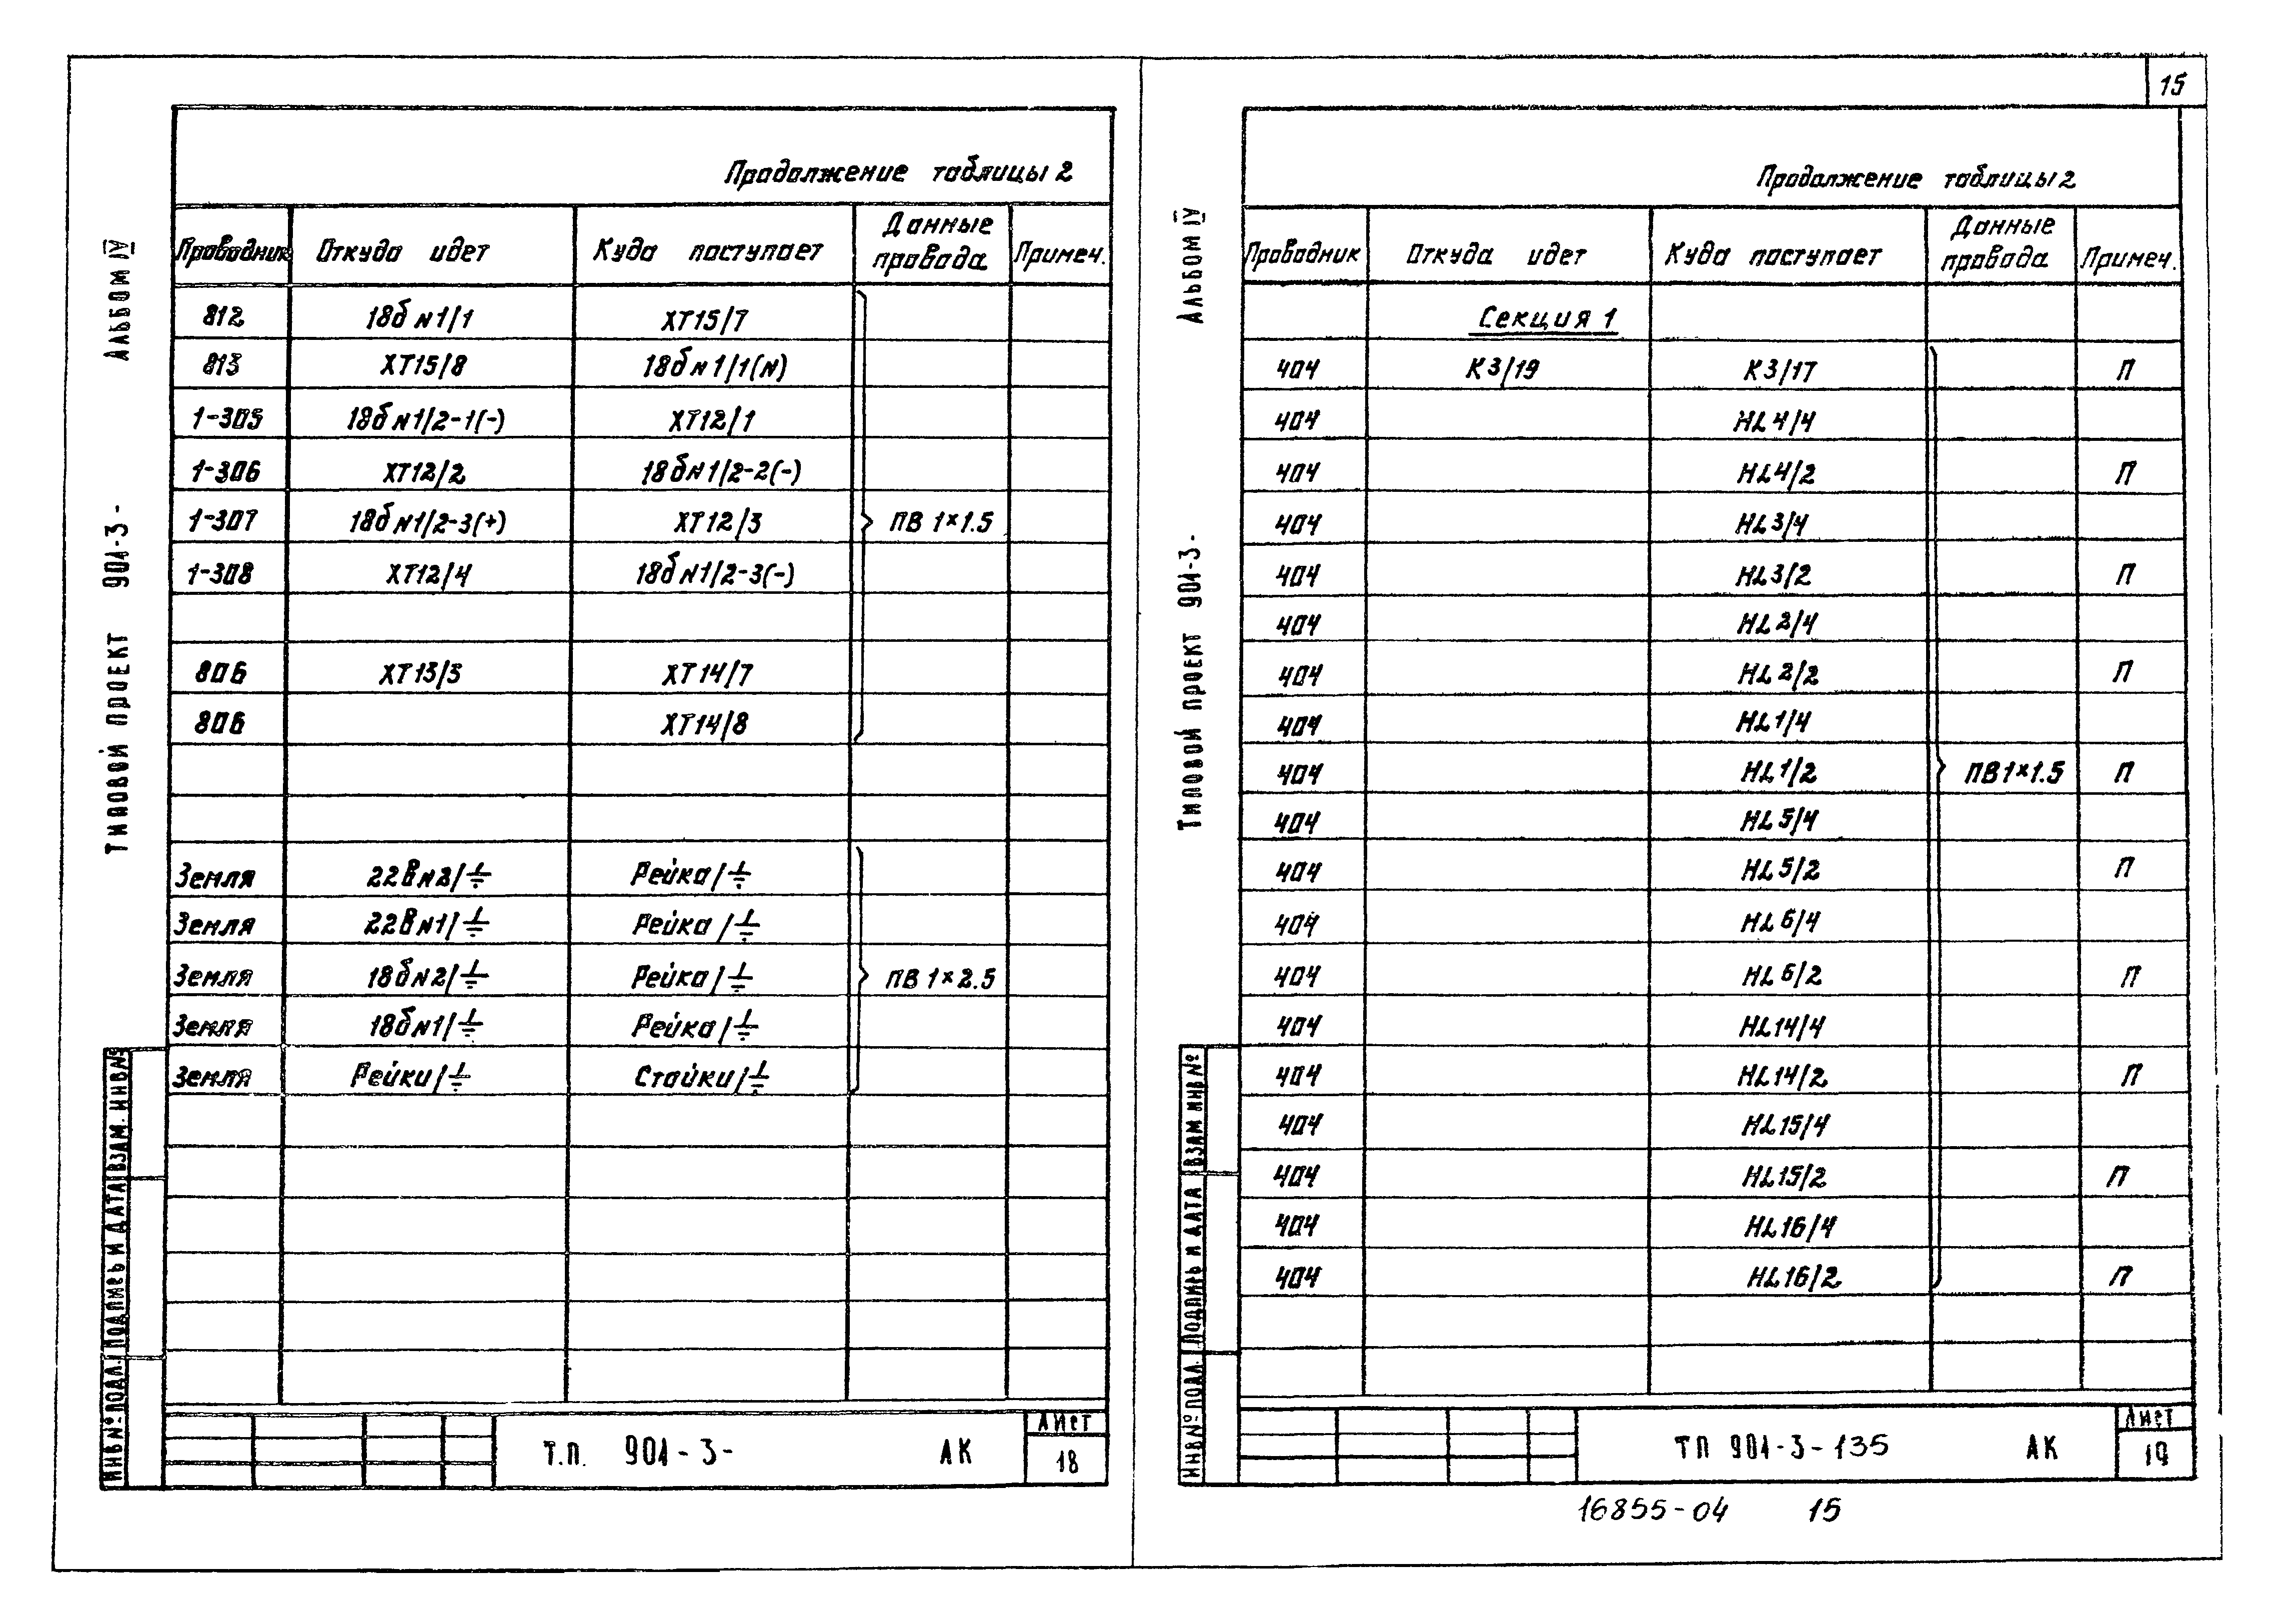 15
Альбом IV
Типовой проект 901-3-
Взам. инв №
Подпись и дата
Инв № подл.
Продолжение таблицы 2
Проводник Откуда идет Куда поступает Данные провода Примеч.
812 18б N1/1 XT15/7
813 XT15/8 18б N1/1(N)
1-305 18б N1/2-1(-) XT12/1
1-306 XT12/2 18б N1/2-2(-)
1-307 18б N1/2-3(+) XT12/3 ПВ 1×1.5
1-308 XT12/4 18б N1/2-3(-)
806 XT13/3 XT14/7
806 XT14/8
Земля 22в N2/⏚ Рейка/⏚
Земля 22в N1/⏚ Рейка/⏚
Земля 18б N2/⏚ Рейка/⏚ ПВ 1×2.5
Земля 18б N1/⏚ Рейка/⏚
Земля Рейки/⏚ Стойки/⏚
Т.П. 901-3- АК
Лист
18
Альбом IV
Типовой проект 901-3-
Взам инв №
Подпись и дата
Инв № подл.
Продолжение таблицы 2
Проводник Откуда идет Куда поступает Данные провода Примеч.
Секция 1
404 К3/19 К3/17 П
404 HL4/4
404 HL4/2 П
404 HL3/4
404 HL3/2 П
404 HL2/4
404 HL2/2 П
404 HL1/4
404 HL1/2 ПВ 1×1.5 П
404 HL5/4
404 HL5/2 П
404 HL6/4
404 HL6/2 П
404 HL14/4
404 HL14/2 П
404 HL15/4
404 HL15/2 П
404 HL16/4
404 HL16/2 П
ТП 901-3-135 АК
Лист
19
16855-04 15